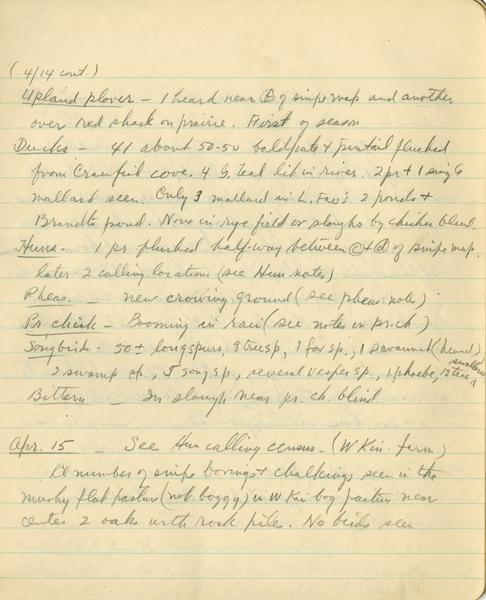 (4/14 cont.)
Upland plover - 1 heard near of snipe map and another
over red shack on prairie. First of season
Ducks - 41 about 50-50 baldpate & pintail flushed
from Crawfish cove. 4 G. teal lit in river. 2 pr + 1 single
mallard seen. Only 3 mallard in L. 2 ponds +
Brandts pond. None in rye field or sloughs by chicken blind.
Huns. - 1 pr flushed half-way between © + ⓓ of snipe map.
later 2 calling locations (see Hun notes)
Pheas. - new crowing ground (see pheas. notes)
Pr. chick - Booming in rain (see notes on pr. ch.)
Songbirds - 50± longspurs, 8 tree sp, 1 fox sp., 1 savannah (heard)
2 swamp sp., 5 song sp, several vesper sp., 1 phoebe, 12 tree swallows
Bittern - In slough near pr. ch. blind
Apr. 15 - See Hun calling census - (W Kin. farm)
A number of snipe borings + chalkings seen in the
mushy flat pasture (not boggy) in W Kin bog pasture near
center 2 oaks with rock piles. No birds seen